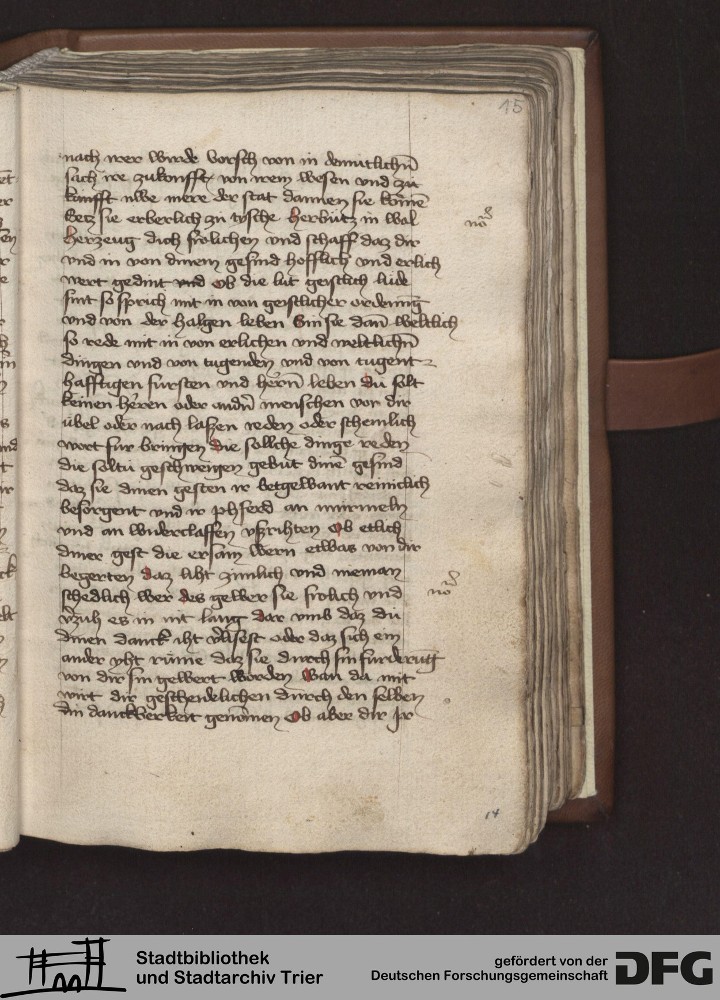 15
nach irer wirde vorsch von in demütlichn̄
sach ire zukonfft von irem wesen vnd zů
kunfft nẅe mere der stat dannen sie komē
Setz sie erberlich zü tysche herbütz in wol
herzeug dich frölichen vnd schaff daz dir
vnd in von dinem gesind hofflich vnd erlich
wert gedint vnd Ob die lüt geistlich lüde
sint so sprich mit in von geistlicher ordenūg
vnd von der halgen leben Sin sie dañ weltlich
so rede mit in von erlichen vnd weltlichn̄
dingen vnd von tugenden vnd von tugent
hafftigen fürsten vnd herrn̄ leben du solt
keinen heren oder andn̄ menschen vor dir
übel oder nach laszen reden oder schemlich
wort fur bringen die sölliche dinge reden
die soltu geschweigen gebüt dinē gesind
daz sie dinen gesten ir betgewant reiniclich
besorgent vnd ir phferd an mürmeln
vnd an widerclaffen vszrihten Ob etlich
diner gest die ersam wern ettwas von dir
begerten daz liht zimlich vnd nieman
schedlich wer des gewer sie frölich vnd
vzüh es in nit lang dar vmb daz du
dinen danck iht v̄lisest oder daz sich ein
ander yht rüme daz sie durch sin furderūg
von dir sin gewert worden Wan da mit
wirt dir geschedelichen durch den selben
din danckberkeit genōmen Ob aber dir Jr
14
Stadtbibliothek
und Stadtarchiv Trier
gefördert von der
Deutschen Forschungsgemeinschaft
DFG